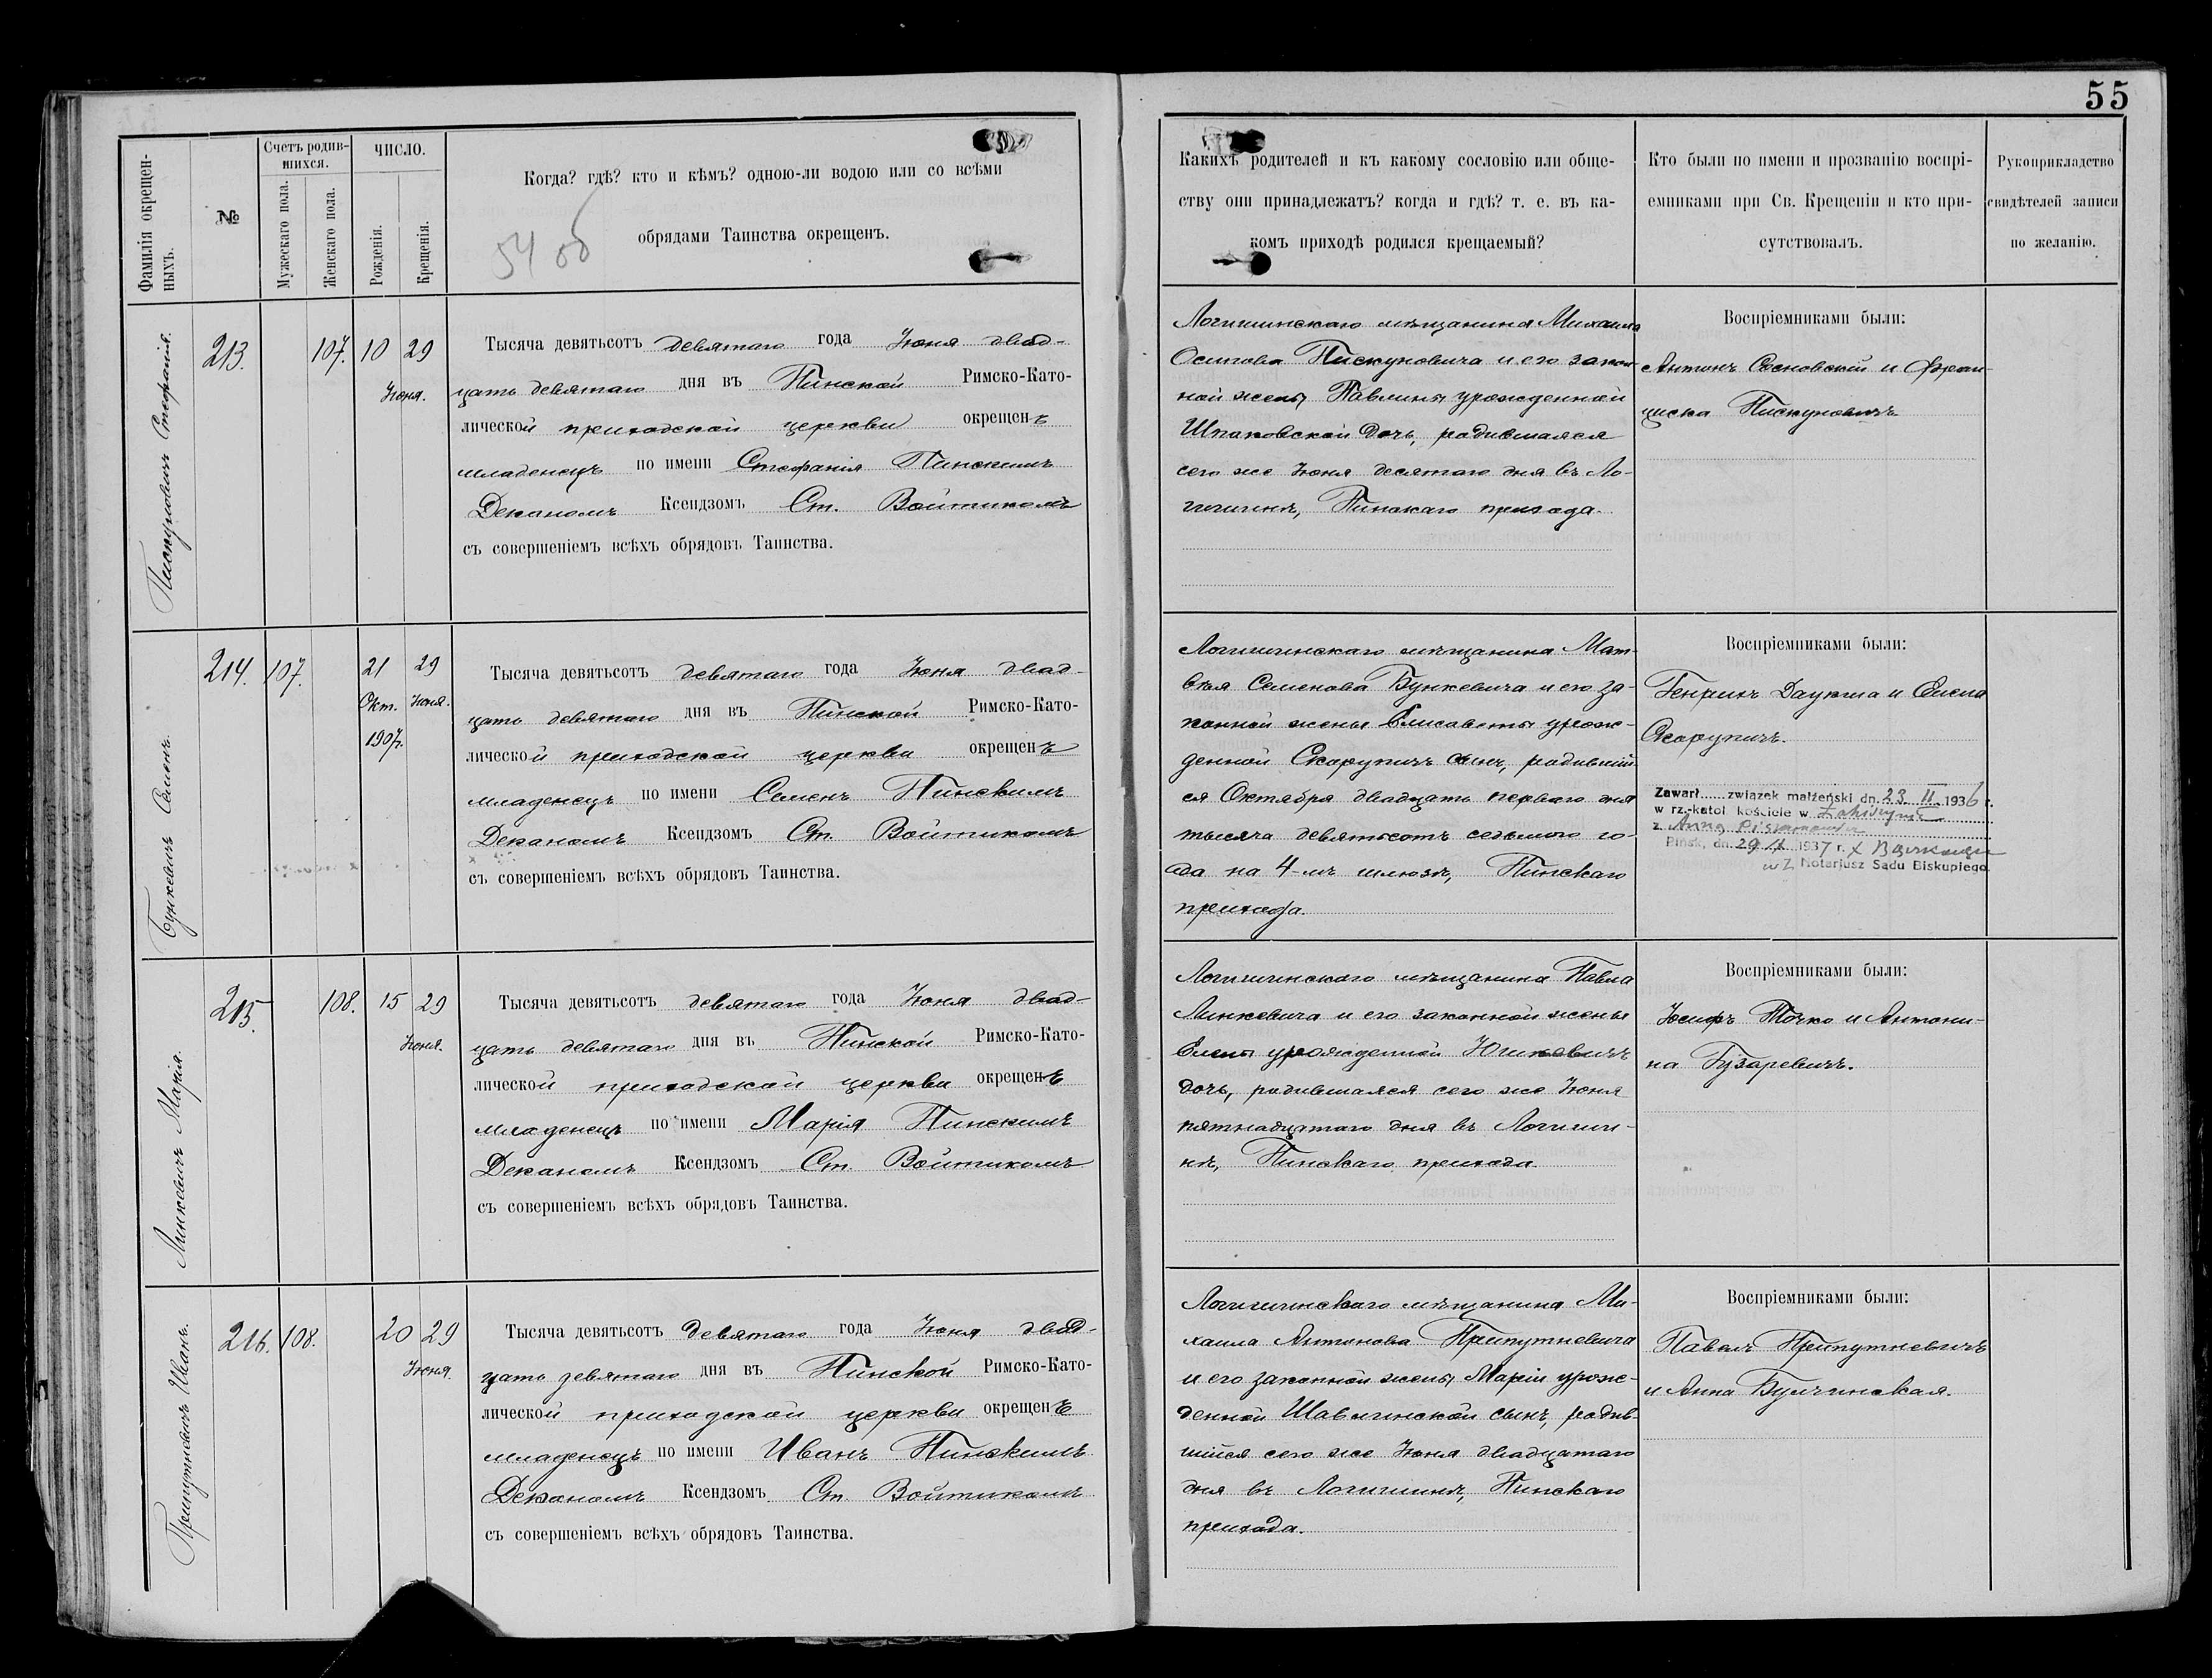 55
Фамилія окрещен-
ныхъ.
№
Счетъ родив-
шихся.
Мужескаго пола.
Женскаго пола.
ЧИСЛО.
Рожденія.
Крещенія.
Когда? гдѣ? кто и кѣмъ? одною-ли водою или со всѣми
обрядами Таинства окрещенъ.
54 об
Какихъ родителей и къ какому сословію или обще-
ству они принадлежатъ? когда и гдѣ? т. е. въ ка-
комъ приходѣ родился крещаемый?
Кто были по имени и прозванію воспрі-
емниками при Св. Крещеніи и кто при-
сутствовалъ.
Рукоприкладство
свидѣтелей записи
по желанію.
Пискуновичъ Стефанія.
213.
107.
10
29
Іюня.
Тысяча девятьсотъ девятаго года Іюня двад-
цать девятаго дня въ Пинской Римско-Като-
лической приходской церкви окрещенъ
младенецъ по имени Стефанія Пинскимъ
Деканомъ Ксендзомъ Ст. Войтикомъ
съ совершеніемъ всѣхъ обрядовъ Таинства.
Логишинскаго мѣщанина Михаила
Осипова Пискуновича и его закон-
ной жены Павлины урожденной
Шпаковской дочь, родившаяся
сего же Іюня десятаго дня въ Ло-
гишинѣ, Пинскаго прихода.
Воспріемниками были:
Антонъ Сосновскій и Фран-
циска Пискуновичъ
Бункевичъ Семенъ.
214.
107.
21
Окт.
1907г.
29
Іюня.
Тысяча девятьсотъ девятаго года Іюня двад-
цать девятаго дня въ Пинской Римско-Като-
лической приходской церкви окрещенъ
младенецъ по имени Семенъ Пинскимъ
Деканомъ Ксендзомъ Ст. Войтикомъ
съ совершеніемъ всѣхъ обрядовъ Таинства.
Логишинскаго мѣщанина Мат-
вѣя Семенова Бункевича и его за-
конной жены Елисаветы урож-
денной Скорупичъ сынъ, родивший-
ся Октября двадцать перваго дня
тысяча девятьсотъ седьмого го-
да на 4-мъ шлюзѣ, Пинскаго
прихода.
Воспріемниками были:
Генрихъ Даукша и Елена
Скорупичъ.
Zawarł..... związek małżeński dn. 23 II 1936 r.
w rz.-katol kościele w
z Anną
Pinsk, dn. 29 1937 r.
wz. Notariusz Sądu Biskupiego
Линкевичъ Марія.
215.
108.
15
29
Іюня.
Тысяча девятьсотъ девятаго года Іюня двад-
цать девятаго дня въ Пинской Римско-Като-
лической приходской церкви окрещенъ
младенецъ по имени Марія Пинскимъ
Деканомъ Ксендзомъ Ст. Войтикомъ
съ совершеніемъ всѣхъ обрядовъ Таинства.
Логишинскаго мѣщанина Павла
Линкевича и его законной жены
Елены урожденной Юшкевичъ
дочь, родившаяся сего же Іюня
пятнадцатаго дня въ Логиши-
нѣ, Пинскаго прихода.
Воспріемниками были:
Іосифъ Точко и Антони-
на Гузаревичъ.
Припутневичъ Иванъ.
216.
108.
20
29
Іюня.
Тысяча девятьсотъ девятаго года Іюня двад-
цать девятаго дня въ Пинской Римско-Като-
лической приходской церкви окрещенъ
младенецъ по имени Иванъ Пинскимъ
Деканомъ Ксендзомъ Ст. Войтикомъ
съ совершеніемъ всѣхъ обрядовъ Таинства.
Логишинскаго мѣщанина Ми-
хаила Антонова Припутневича
и его законной жены Маріи урож-
денной Шавлинской сынъ, родив-
шійся сего же Іюня двадцатаго
дня въ Логишинѣ, Пинскаго
прихода.
Воспріемниками были:
Павелъ Припутневичъ
и Анна Булчинская.